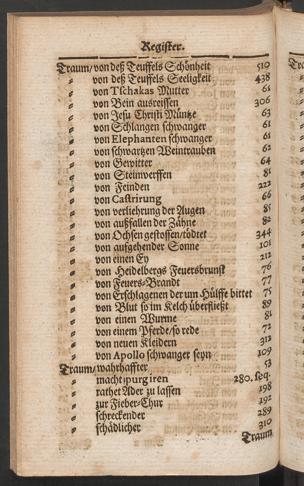 Register.
Traum/ von deß Teuffels Schönheit 510
von deß Teuffels Seeligkeit 438
von Tschakas Mutter 61
von Bein ausreissen 306
von Jesu Christi Müntze 63
von Schlangen schwanger 61
von Elephanten schwanger 61
von schwartzen Weintrauben 62
von Gewitter 64
von Steinwerffen 81
von Feinden 222
von Castrirung 66
von verliehrung der Augen 81
von außfallen der Zähne 82
von Ochsen gestossen/ tödtet 344
von aufgehender Sonne 101
von einen Ey 212
von Heidelbergs Feuersbrunst 76
von Feuers-Brandt 77
von Erschlagenen der um Hülffe bittet 75
von Blut so im Kelch überfließt 89
von einen Wurme 81
von einem Pferde/ so rede 72
von neuen Kleidern 312
von Apollo schwanger seyn 109
Traum/ wahrhaffter 53
macht purgiren 280. seq.
rathet Ader zu lassen 198
zur Fieber-Chur 192
schreckender 289
schädlicher 310
Traum